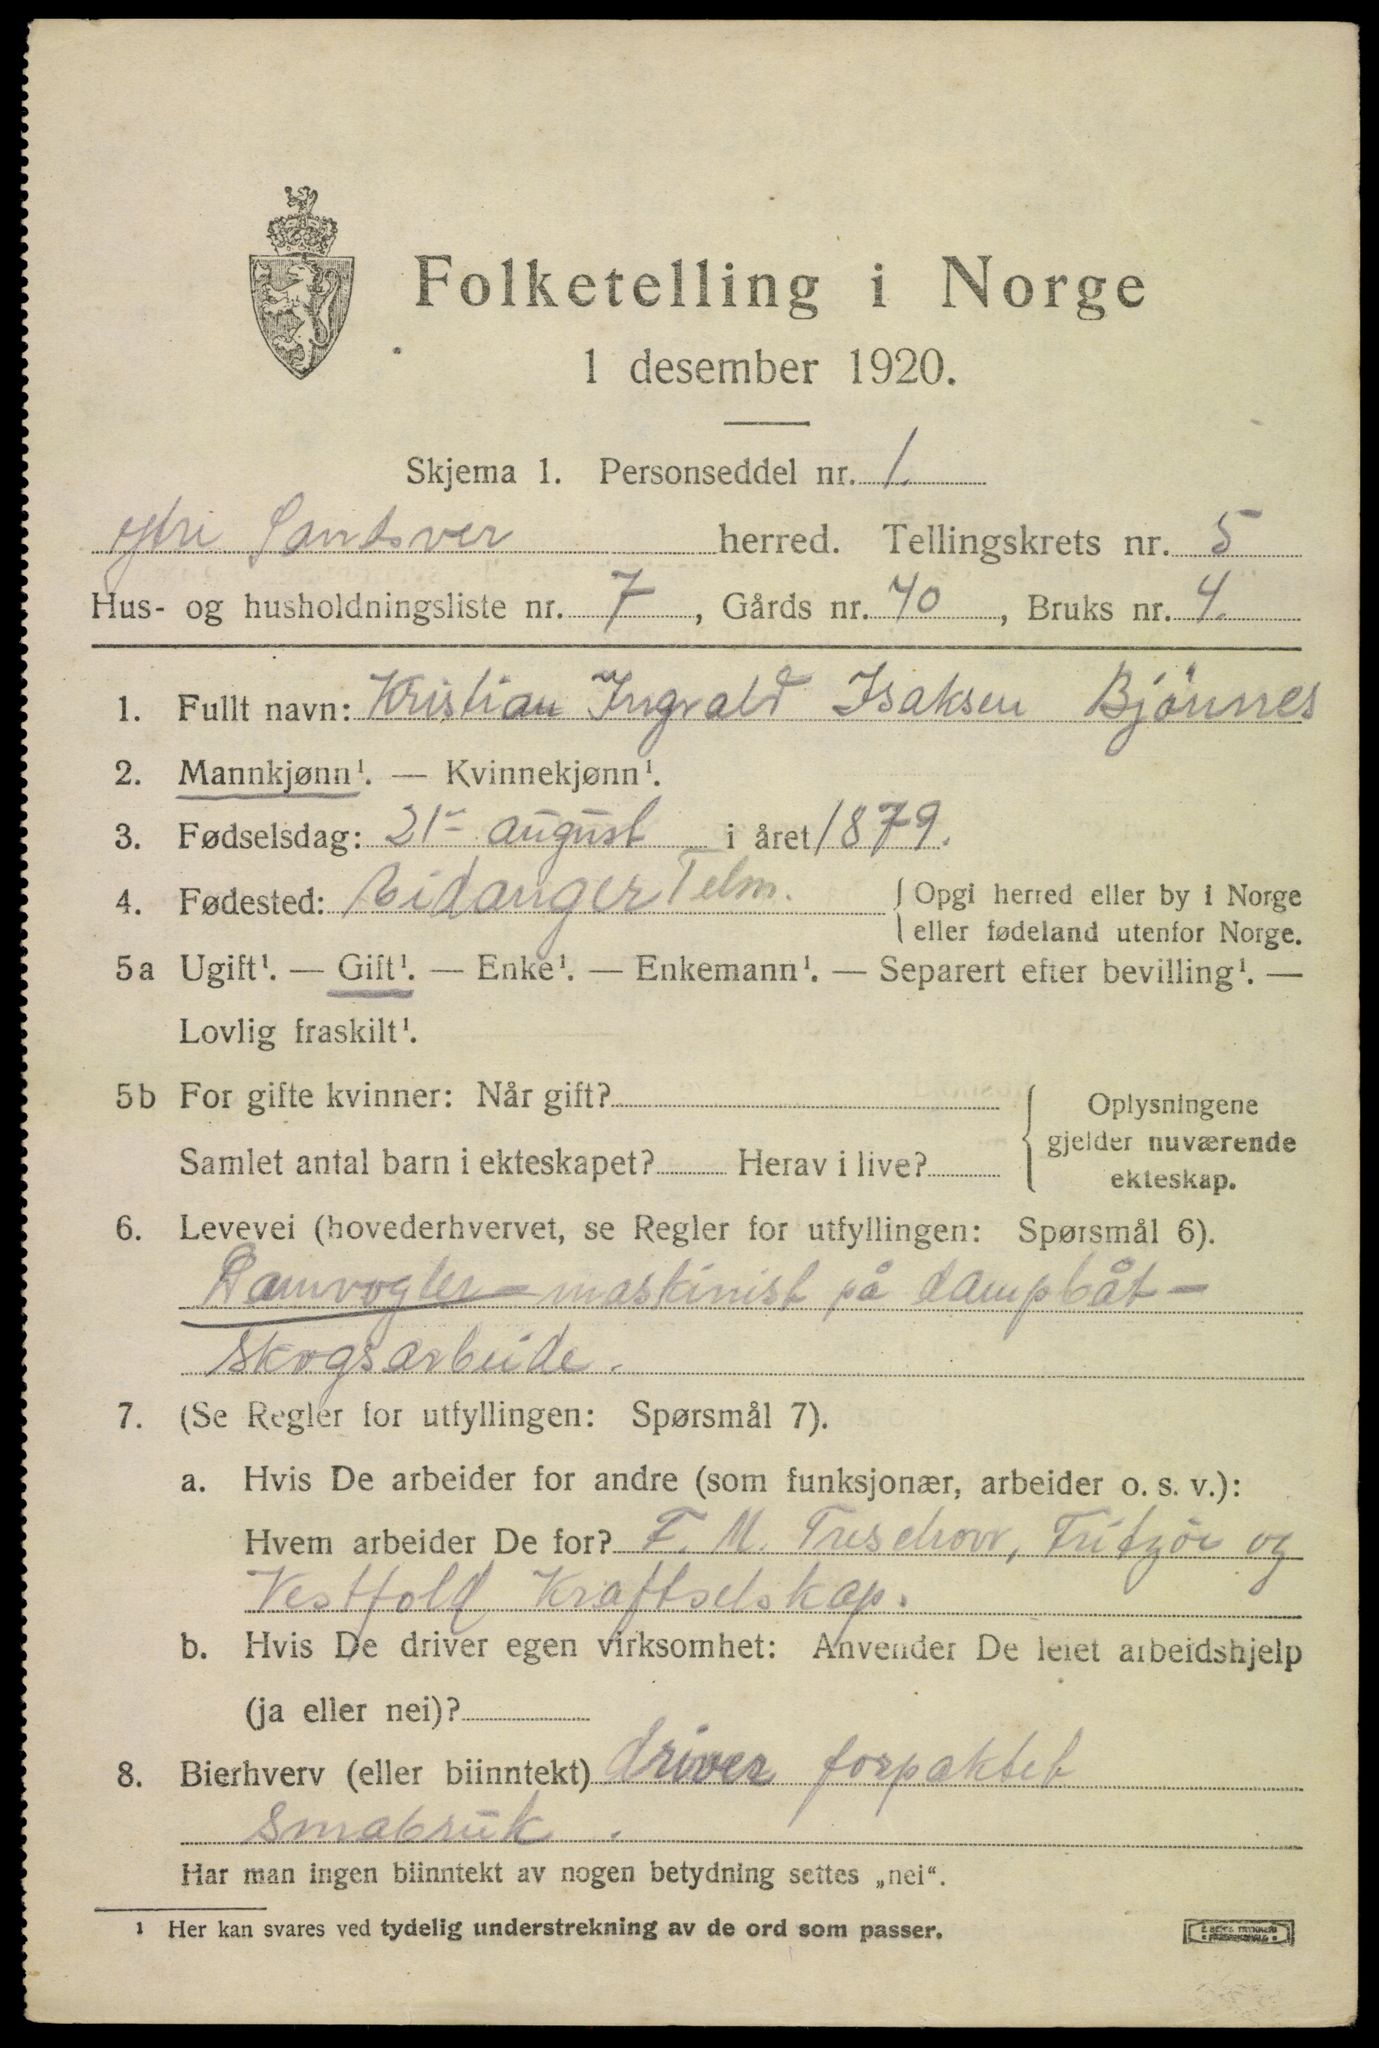 Folketelling i Norge
1 desember 1920.
Skjema 1. Personseddel nr. 1.
Ytre Sandsver herred. Tellingskrets nr. 5
Hus- og husholdningsliste nr. 7, Gårds nr. 40, Bruks nr. 4.
1. Fullt navn: Kristian Ingvald Isaksen Bjönnes
2. Mannkjønn¹. — Kvinnekjønn¹.
3. Fødselsdag: 21 august i året 1879.
4. Fødested: Eidanger Telm. { Opgi herred eller by i Norge
eller fødeland utenfor Norge.
5a Ugift¹. — Gift¹. — Enke¹. — Enkemann¹. — Separert efter bevilling¹. —
Lovlig fraskilt¹.
5b For gifte kvinner: Når gift?
Samlet antal barn i ekteskapet? Herav i live?
{ Oplysningene
gjelder nuværende
ekteskap.
6. Levevei (hovederhvervet, se Regler for utfyllingen: Spørsmål 6).
Damvogter – maskinist på dampbåt –
skogsarbeide.
7. (Se Regler for utfyllingen: Spørsmål 7).
a. Hvis De arbeider for andre (som funksjonær, arbeider o. s. v.):
Hvem arbeider De for? F. M. Treschow, Fritzöe og
Vestfold Kraftselskap.
b. Hvis De driver egen virksomhet: Anvender De leiet arbeidshjelp
(ja eller nei)?
8. Bierhverv (eller biinntekt) driver forpaktet
smabruk.
Har man ingen biinntekt av nogen betydning settes „nei“.
¹ Her kan svares ved tydelig understrekning av de ord som passer.